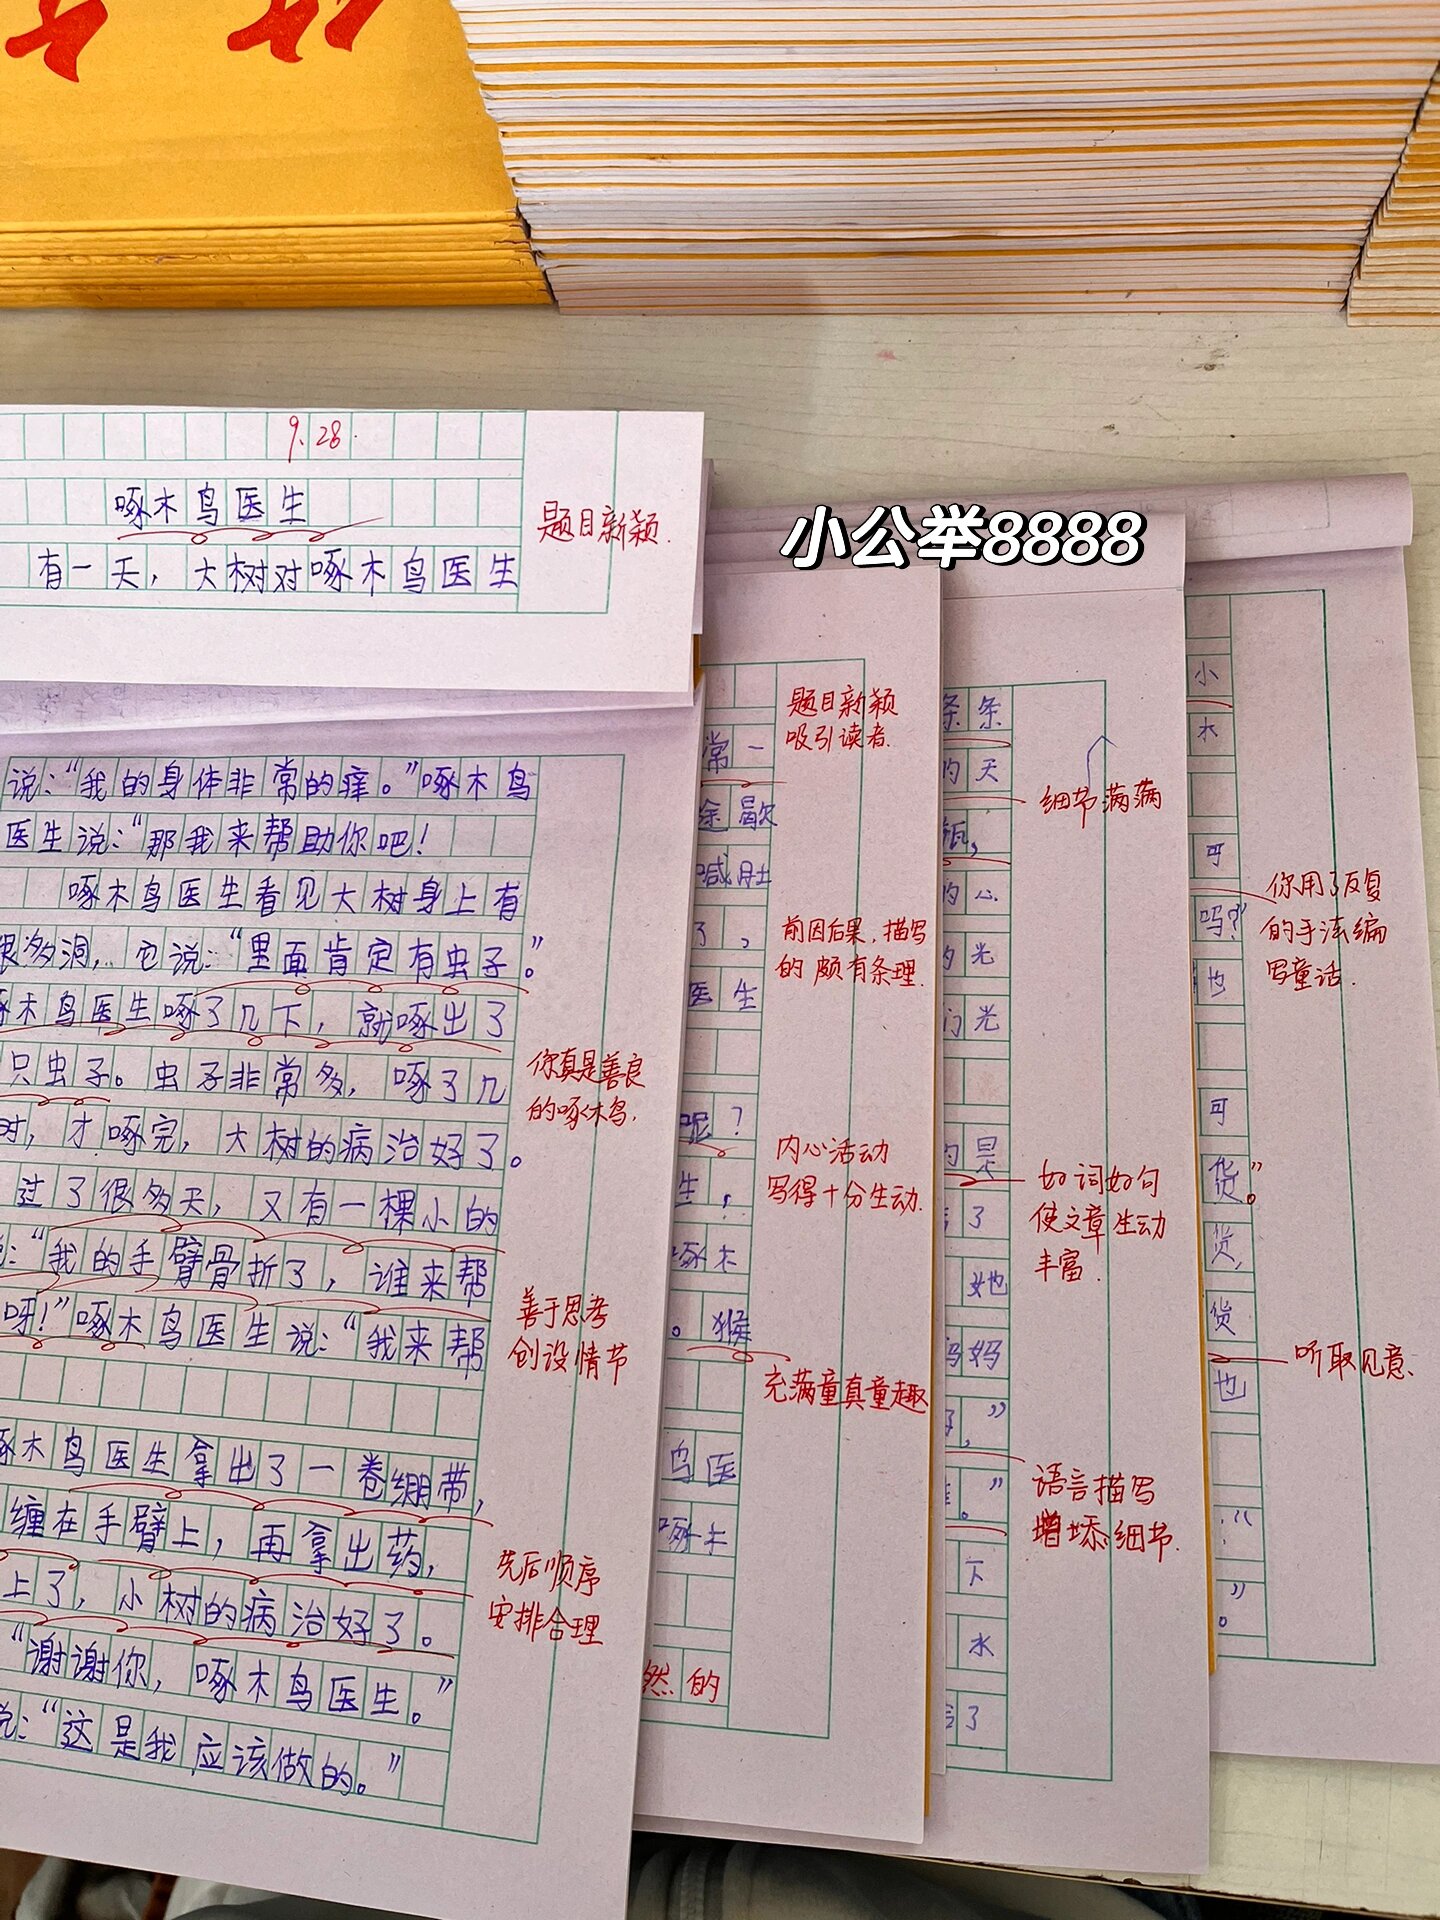 9.28
啄木鸟医生
题目新颖.
有一天，大树对啄木鸟医生
小公举8888
说：“我的身体非常的痒。”啄木鸟
医生说：“那我来帮助你吧！
啄木鸟医生看见大树身上有
很多洞，它说：“里面肯定有虫子。”
啄木鸟医生啄了几下，就啄出了
只虫子。虫子非常多，啄了几
时，才啄完，大树的病治好了。
过了很多天，又有一棵小的
说：“我的手臂骨折了，谁来帮
呀！”啄木鸟医生说：“我来帮
啄木鸟医生拿出了一卷绷带，
缠在手臂上，再拿出药，
上了，小树的病治好了。
“谢谢你，啄木鸟医生。”
说：“这是我应该做的。”
你真是善良
的啄木鸟.
善于思考
创设情节
先后顺序
安排合理
常一
歇
喊肚
了，
医生
呢？
生，
啄木
。猴
鸟医
啄木
然的
题目新颖
吸引读者.
前因后果，描写
的颇有条理.
内心活动
写得十分生动.
充满童真童趣
条条
的天
瓶，
的心
的光
们光
的是
了
她
妈妈
好，”
。”
下
水
了
细节满满
好词好句
使文章生动
丰富.
语言描写
增添细节.
小
木
可
吗？”
也
可
货。”
货，
货
也
：“
。”
你用了反复
的手法编
写童话.
听取见意.